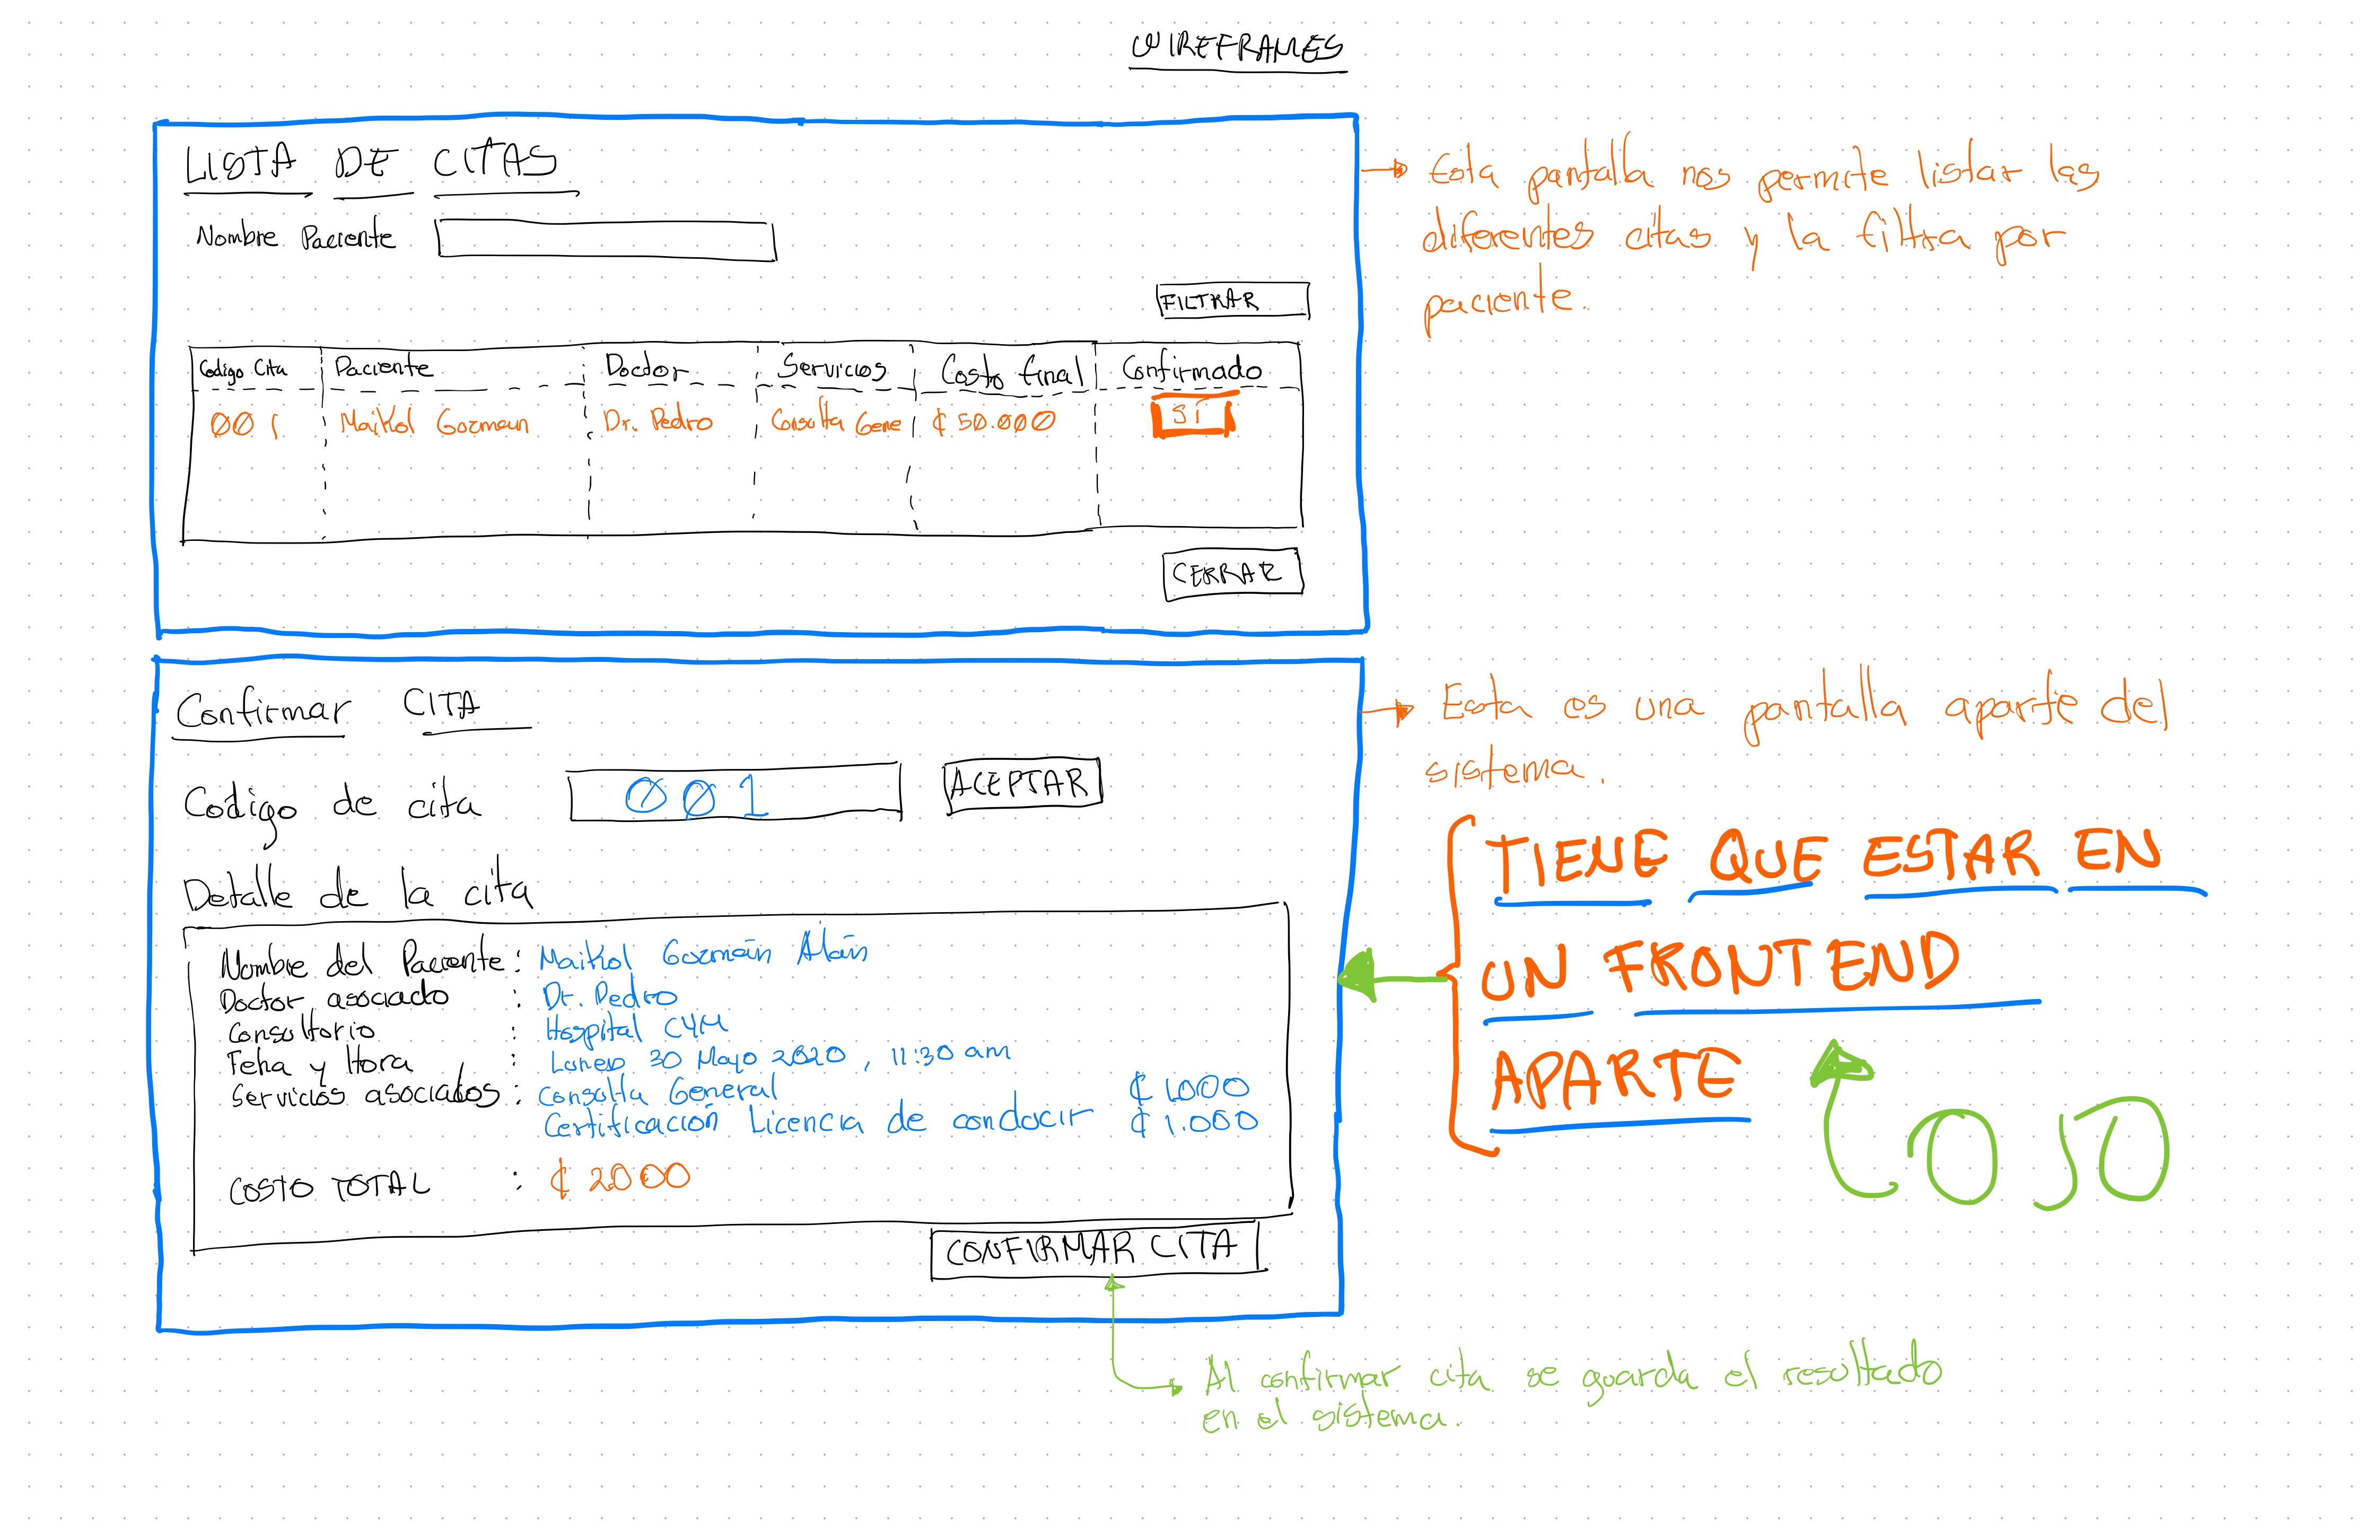 WIREFRAMES
LISTA DE CITAS
Nombre Paciente
FILTRAR
Codigo Cita Paciente Doctor Servicios Costo final Confirmado
001 Maikol Guzman Dr. Pedro Consulta Gene ₡ 50.000 SI
CERRAR
Esta pantalla nos permite listar las
diferentes citas y la filtra por
paciente.
Confirmar CITA
Codigo de cita 001 ACEPTAR
Detalle de la cita
Nombre del Paciente : Maikol Guzmán Alán
Doctor asociado : Dr. Pedro
Consultorio : Hospital CYM
Feha y Hora : Lunes 30 Mayo 2020, 11:30 am
Servicios asociados : Consulta General ₡ 1.000
Certificación Licencia de conducir ₡ 1.000
COSTO TOTAL : ₡ 2000
CONFIRMAR CITA
Esta es una pantalla aparte del
sistema.
TIENE QUE ESTAR EN
UN FRONTEND
APARTE
OJO
Al confirmar cita se guarda el resultado
en el sistema.